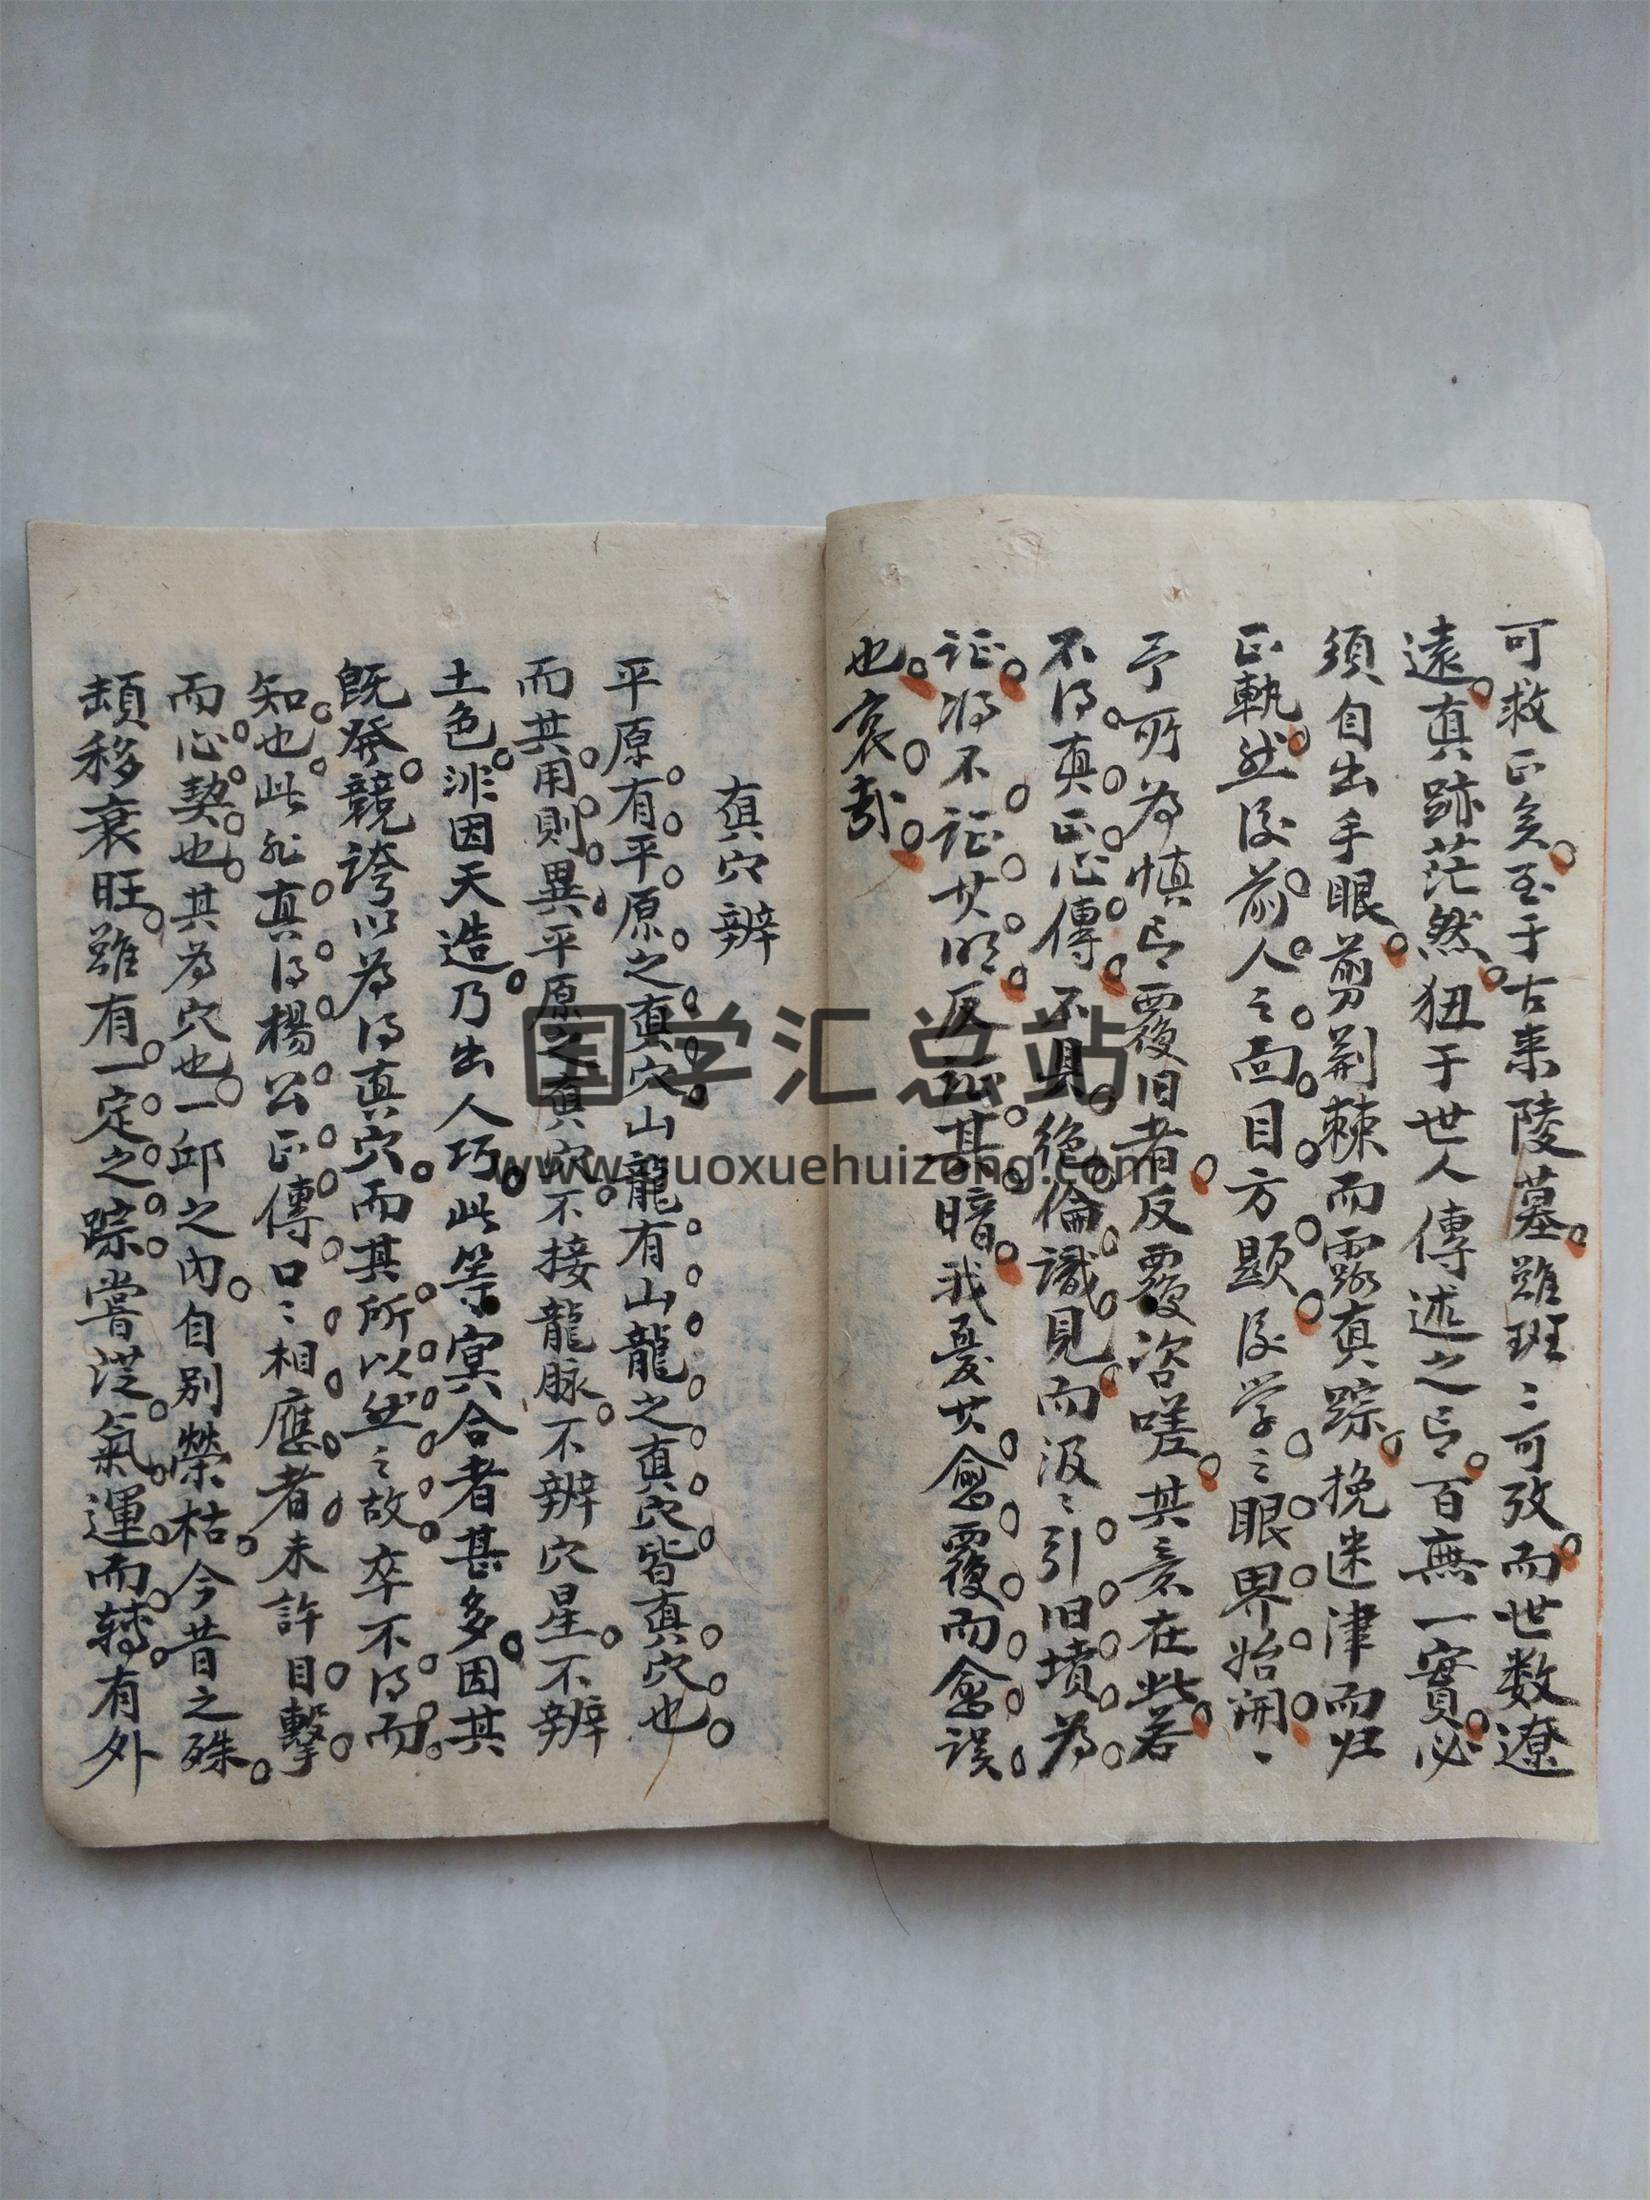 可救正矣至于古来陵墓雖班〻可攷而世数遼
遠真跡茫然狃于世人傳述之言百無一實必
須自出手眼剪荆棘而露真踪挽迷津而归
正軌然後前人之面目方顕後学之眼界始開〻
予所為慎言覆旧者反覆咨嗟其意在此若
不得真正心傳不具絶倫識見而汲〻引旧墳為
証将不証其明反証其暗我憂其愈覆而愈误
也哀哉
真穴辨
平原有平原之真穴山龍有山龍之真穴皆真穴也
而其用則異平原之真穴不接龍脉不辨穴星不辨
土色非因天造乃出人巧此等冥合者甚多因其
既發競誇以為得真穴而其所以然之故卒不得而
知也此非真得楊公正傳口〻相應者未許目擊
而心契也其為穴也一邱之內自別榮枯今昔之殊
頓移衰旺雖有一定之踪嘗從氣運而轉有外
国学汇总站
www.guoxuehuizong.com